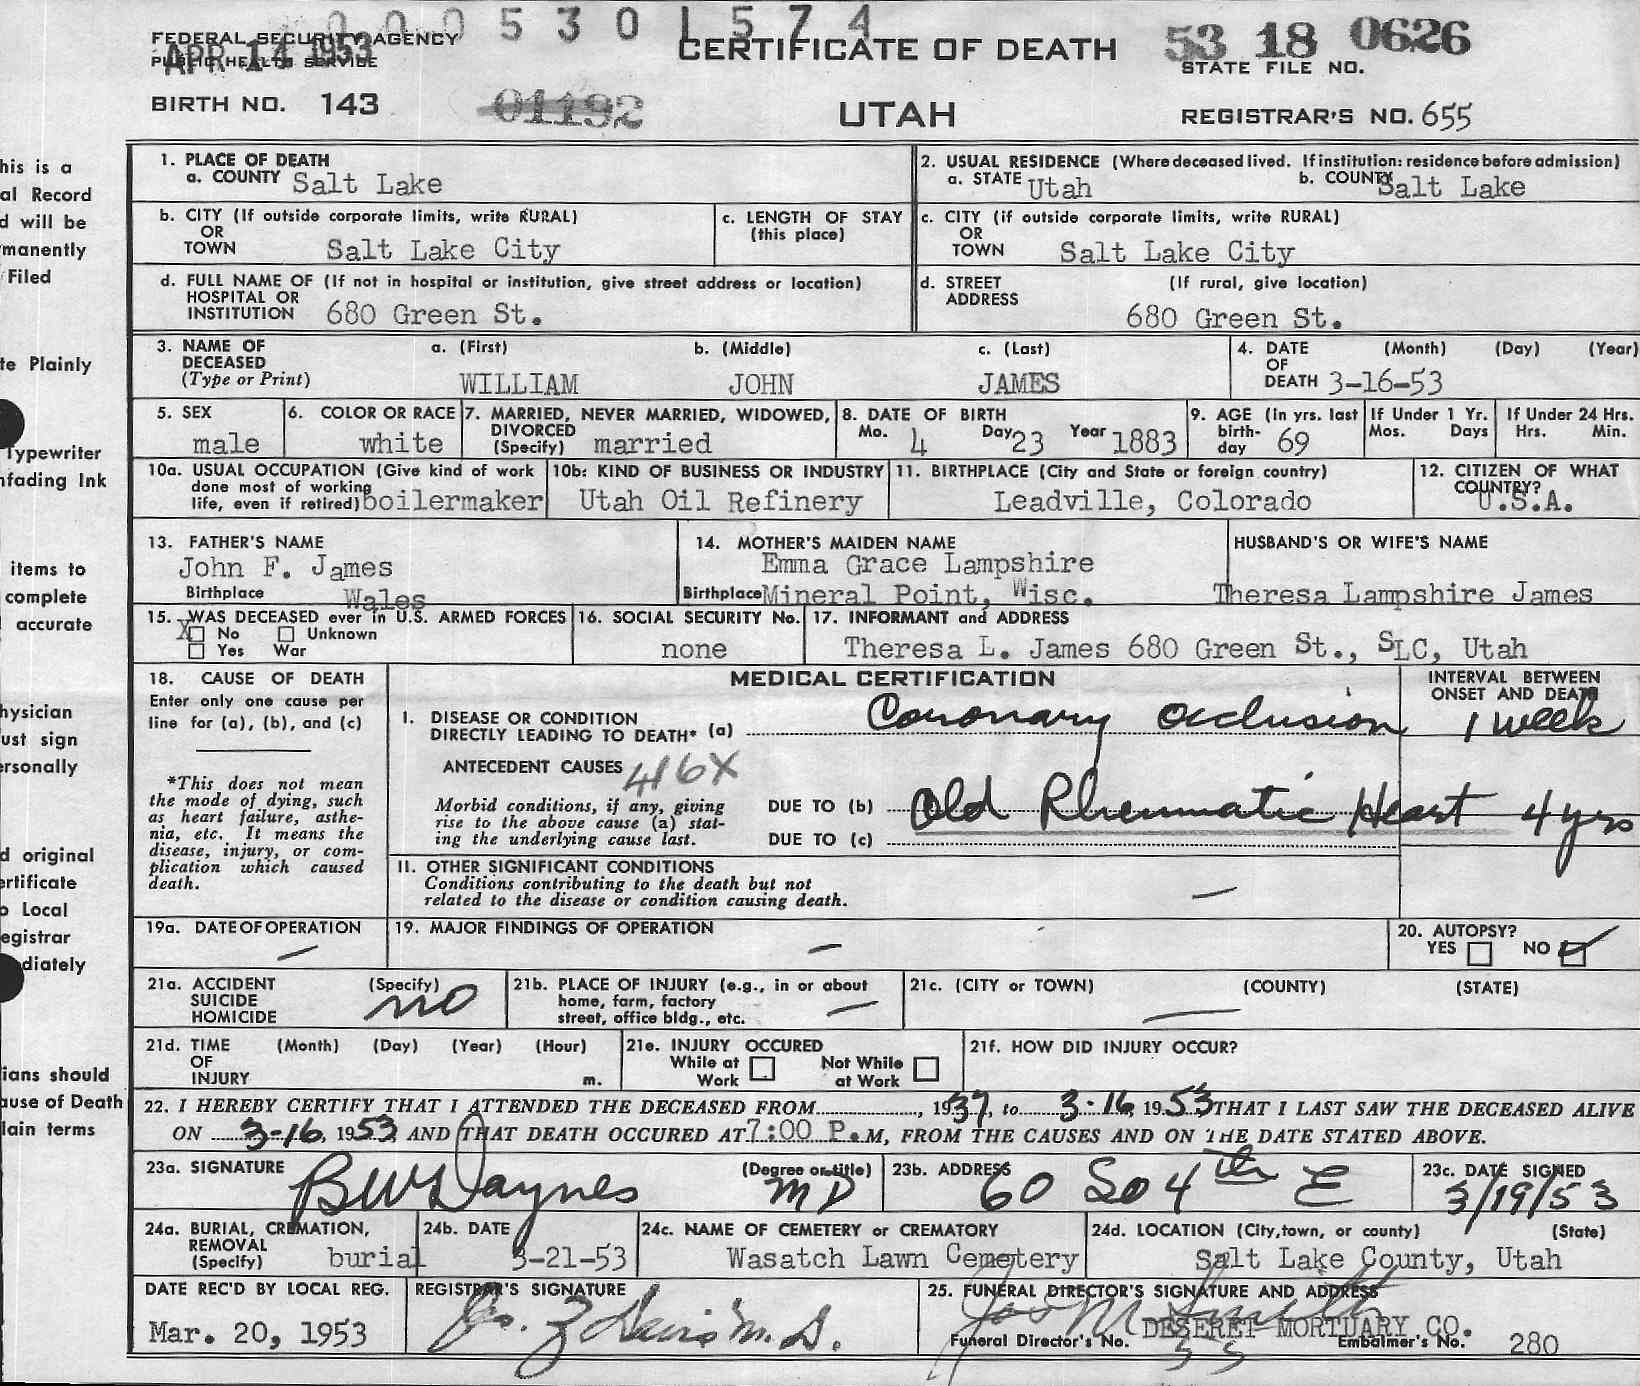 0 0 0 5 3 0 1 5 7 4
FEDERAL SECURITY AGENCY
PUBLIC HEALTH SERVICE
APR 14 1953
CERTIFICATE OF DEATH
53 18 0626
STATE FILE NO.
BIRTH NO. 143
01192
UTAH
REGISTRAR'S NO. 655
his is a
al Record
d will be
manently
Filed
te Plainly
Typewriter
nfading Ink
items to
complete
accurate
hysician
ust sign
ersonally
d original
ertificate
o Local
egistrar
diately
ians should
ause of Death
lain terms
1. PLACE OF DEATH
a. COUNTY Salt Lake
2. USUAL RESIDENCE (Where deceased lived. If institution: residence before admission)
a. STATE Utah b. COUNTY Salt Lake
b. CITY (If outside corporate limits, write RURAL)
OR
TOWN Salt Lake City
c. LENGTH OF STAY
(this place)
c. CITY (if outside corporate limits, write RURAL)
OR
TOWN Salt Lake City
d. FULL NAME OF (If not in hospital or institution, give street address or location)
HOSPITAL OR
INSTITUTION 680 Green St.
d. STREET (If rural, give location)
ADDRESS
680 Green St.
3. NAME OF DECEASED (Type or Print)
a. (First) b. (Middle) c. (Last)
WILLIAM JOHN JAMES
4. DATE (Month) (Day) (Year)
OF
DEATH 3-16-53
5. SEX
male
6. COLOR OR RACE
white
7. MARRIED, NEVER MARRIED, WIDOWED,
DIVORCED
(Specify) married
8. DATE OF BIRTH
Mo. 4 Day 23 Year 1883
9. AGE (In yrs. last
birth-
day 69
If Under 1 Yr.
Mos. Days
If Under 24 Hrs.
Hrs. Min.
10a. USUAL OCCUPATION (Give kind of work
done most of working
life, even if retired) boilermaker
10b: KIND OF BUSINESS OR INDUSTRY
Utah Oil Refinery
11. BIRTHPLACE (City and State or foreign country)
Leadville, Colorado
12. CITIZEN OF WHAT
COUNTRY?
U.S.A.
13. FATHER'S NAME
John F. James
Birthplace Wales
14. MOTHER'S MAIDEN NAME
Emma Grace Lampshire
Birthplace Mineral Point, Wisc.
HUSBAND'S OR WIFE'S NAME
Theresa Lampshire James
15. WAS DECEASED ever in U.S. ARMED FORCES
X No Unknown
Yes War
16. SOCIAL SECURITY No.
none
17. INFORMANT and ADDRESS
Theresa L. James 680 Green St., SLC, Utah
18. CAUSE OF DEATH
Enter only one cause per
line for (a), (b), and (c)
*This does not mean
the mode of dying, such
as heart failure, asthe-
nia, etc. It means the
disease, injury, or com-
plication which caused
death.
MEDICAL CERTIFICATION
INTERVAL BETWEEN
ONSET AND DEATH
I. DISEASE OR CONDITION
DIRECTLY LEADING TO DEATH* (a) Coronary Occlusion 1 week
ANTECEDENT CAUSES 416X
Morbid conditions, if any, giving
rise to the above cause (a) stat-
ing the underlying cause last.
DUE TO (b) Old Rheumatic Heart 4 yrs
DUE TO (c)
II. OTHER SIGNIFICANT CONDITIONS
Conditions contributing to the death but not
related to the disease or condition causing death. —
19a. DATE OF OPERATION
—
19. MAJOR FINDINGS OF OPERATION
—
20. AUTOPSY?
YES NO ✓
21a. ACCIDENT (Specify)
SUICIDE
HOMICIDE
no
21b. PLACE OF INJURY (e.g., in or about
home, farm, factory
street, office bldg., etc. —
21c. (CITY or TOWN) (COUNTY) (STATE)
—
21d. TIME (Month) (Day) (Year) (Hour)
OF
INJURY m.
21e. INJURY OCCURED
While at Work Not While at Work
21f. HOW DID INJURY OCCUR?
22. I HEREBY CERTIFY THAT I ATTENDED THE DECEASED FROM, 1937, to 3-16, 1953 THAT I LAST SAW THE DECEASED ALIVE
ON 3-16, 1953, AND THAT DEATH OCCURED AT 7:00 P.M, FROM THE CAUSES AND ON THE DATE STATED ABOVE.
23a. SIGNATURE (Degree or title)
BW Daynes MD
23b. ADDRESS
60 So 4th E
23c. DATE SIGNED
3/19/53
24a. BURIAL, CREMATION,
REMOVAL
(Specify) burial
24b. DATE
3-21-53
24c. NAME OF CEMETERY or CREMATORY
Wasatch Lawn Cemetery
24d. LOCATION (City, town, or county) (State)
Salt Lake County, Utah
DATE REC'D BY LOCAL REG.
Mar. 20, 1953
REGISTRAR'S SIGNATURE
M.D.
25. FUNERAL DIRECTOR'S SIGNATURE AND ADDRESS
DESERET MORTUARY CO.
Funeral Director's No. 55 Embalmer's No. 280